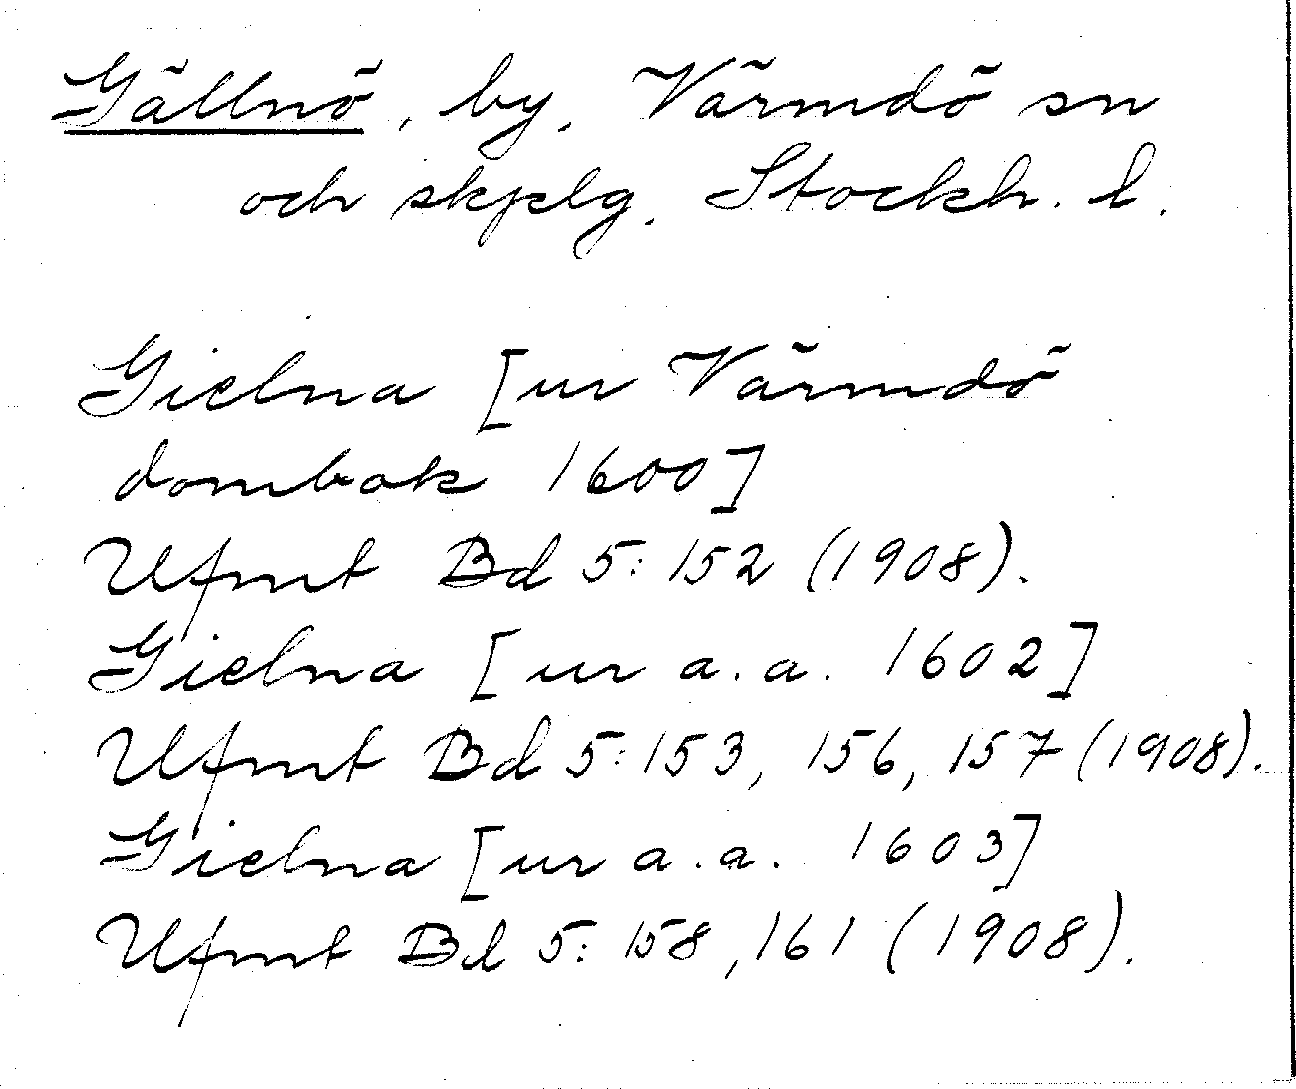 Gällnö, by, Värmdö sn
och skplg. Stockh. l.
Gielna [ur Värmdö
dombok 1600]
Ufmt Bd 5: 152 (1908).
Gielna [ur a.a. 1602]
Ufmt Bd 5: 153, 156, 157 (1908).
Gielna [ur a.a. 1603]
Ufmt Bd 5: 158, 161 (1908).